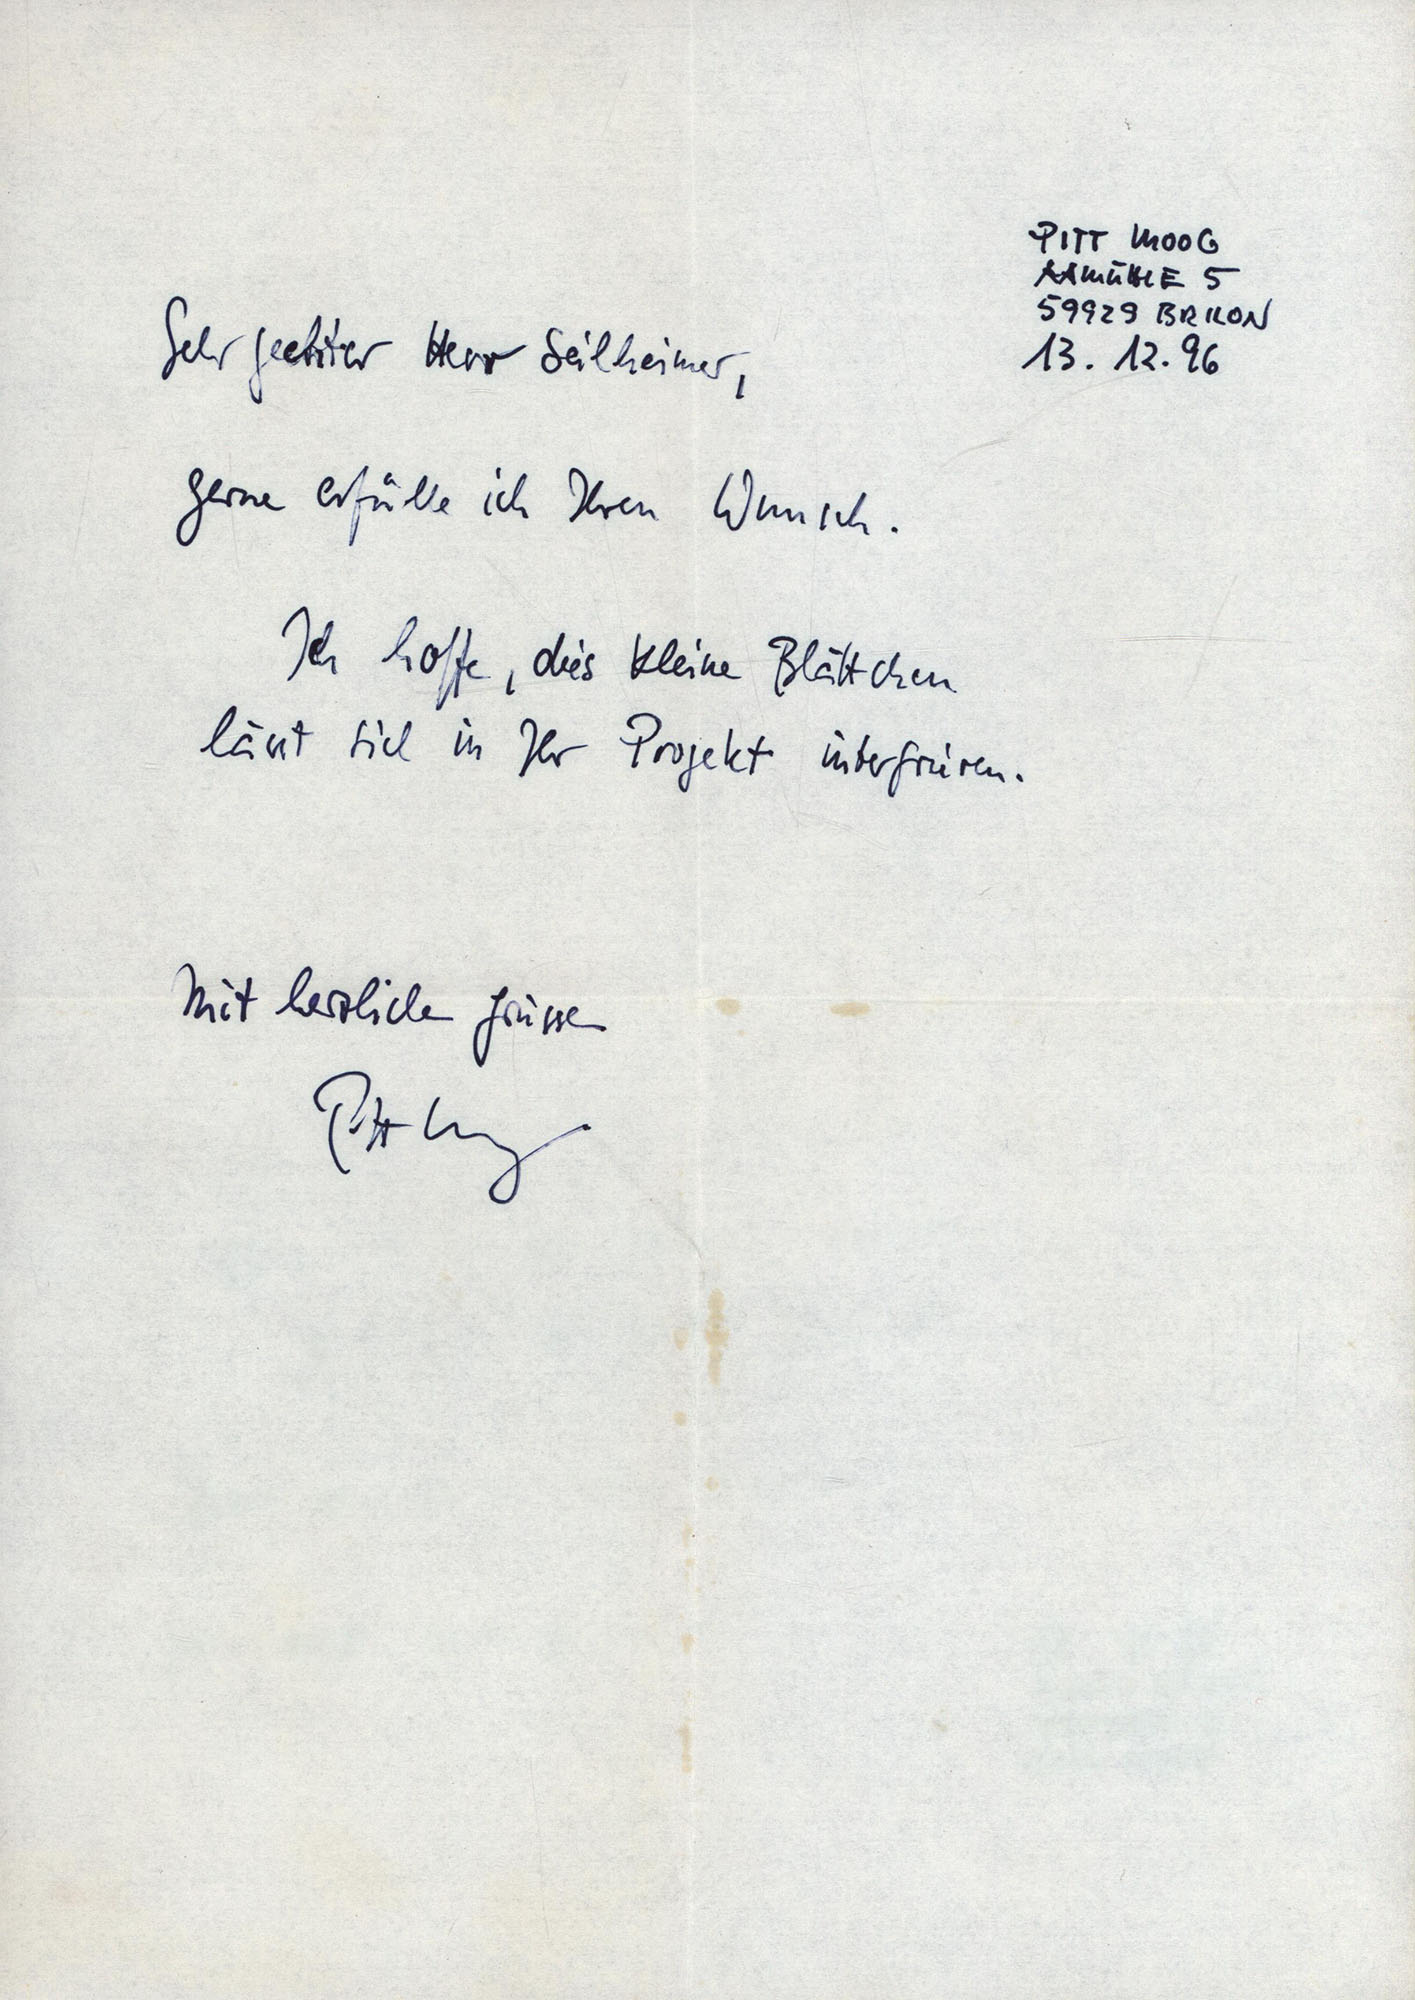 PITT MOOG
AAMÜHLE 5
59929 BRILON
13. 12. 96
Sehr geehrter Herr Seilheimer,
gerne erfülle ich Ihren Wunsch.
Ich hoffe, dies kleine Blättchen
lässt sich in Ihr Projekt integrieren.
Mit herzlichen Grüssen
Pitt Moog